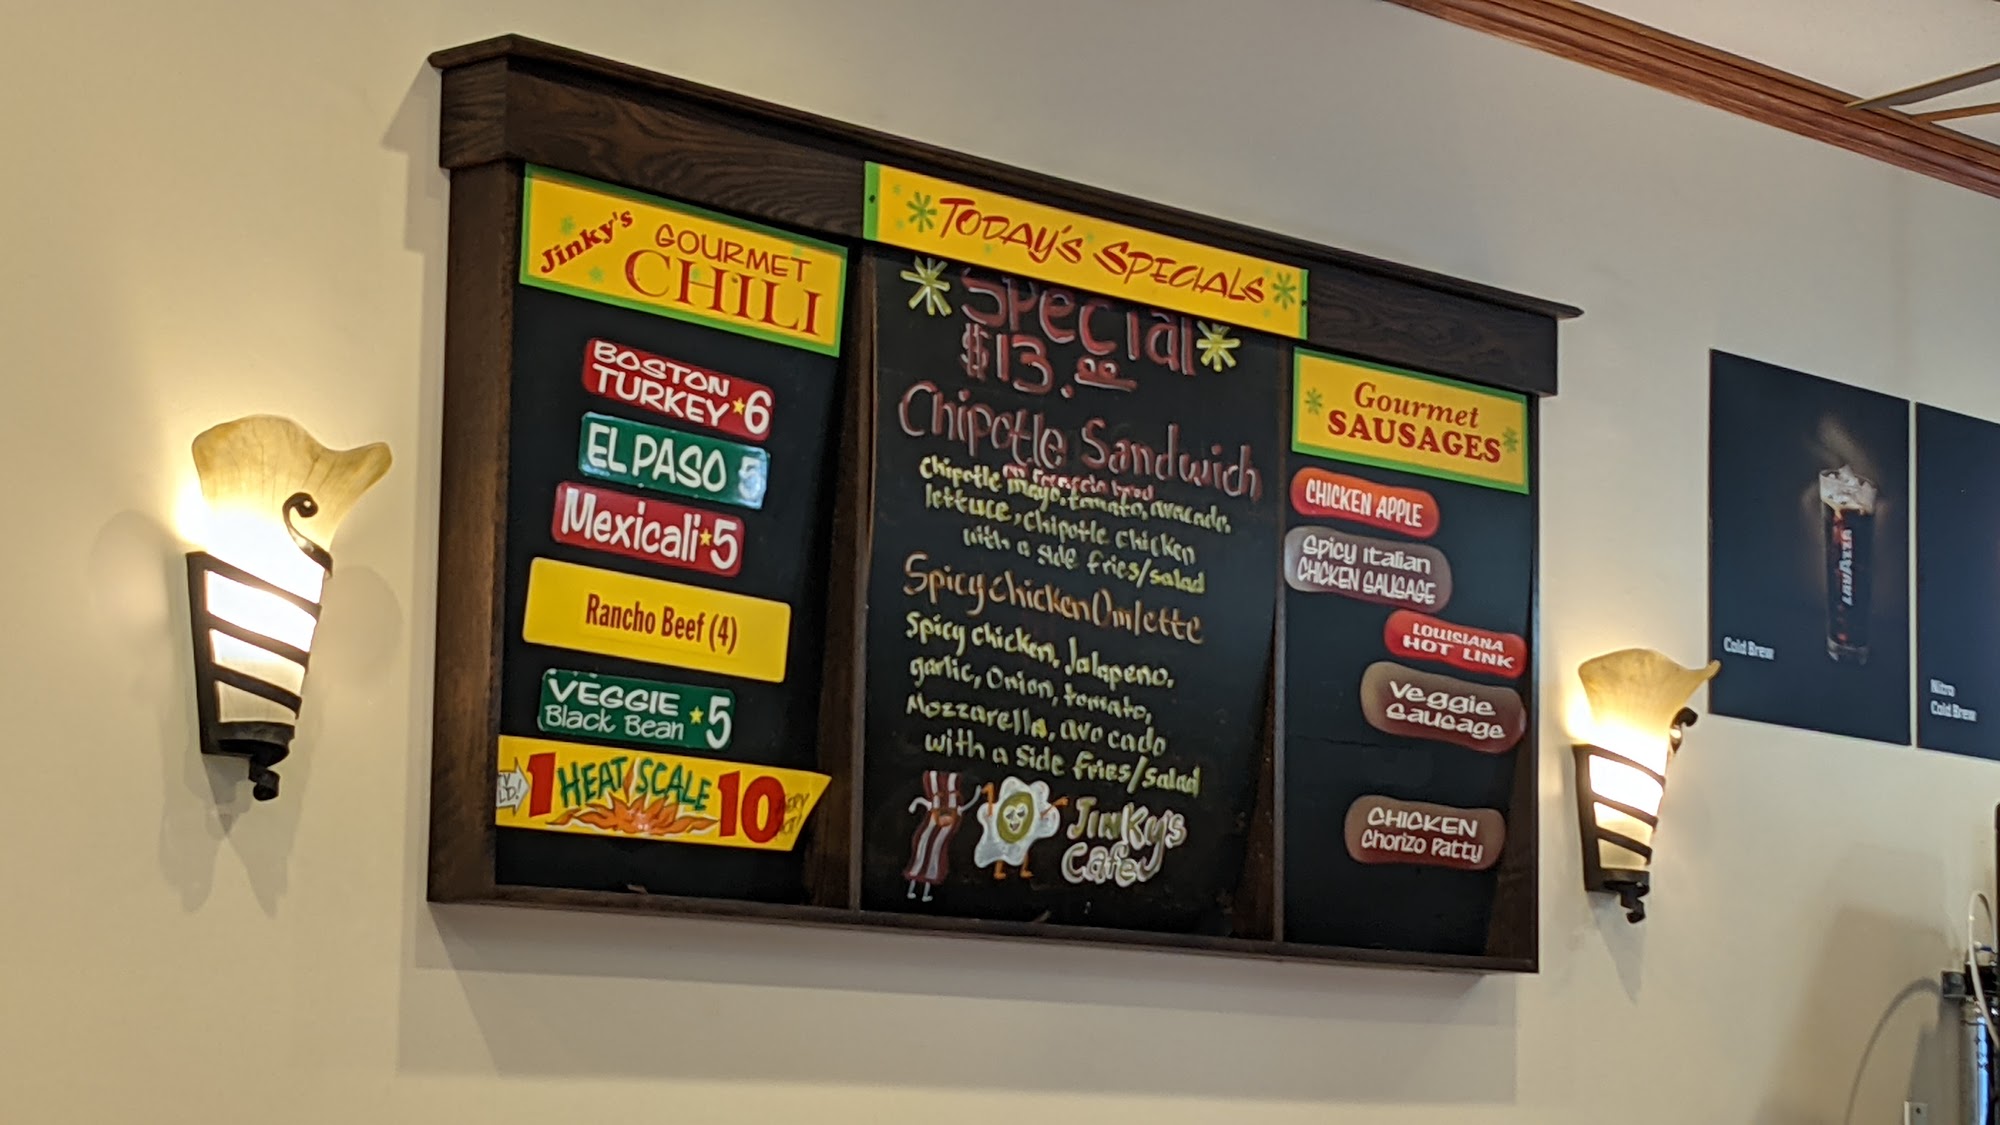 Jinky's
GOURMET
CHILI
BOSTON
TURKEY 6
EL PASO 5
Mexicali 5
Rancho Beef (4)
VEGGIE
Black Bean 5
1 HEAT SCALE 10
TODAY'S SPECIALS
Special
$13.00
Chipotle Sandwich
on Focaccia bread
Chipotle mayo, tomato, avocado,
lettuce, chipotle chicken
with a side fries/salad
Spicy chicken Omlette
Spicy chicken, Jalapeno,
garlic, Onion, tomato,
Mozzarella, avocado
with a side fries/salad
Jinky's
Cafe
Gourmet
SAUSAGES
CHICKEN APPLE
Spicy Italian
CHICKEN SAUSAGE
LOUISIANA
HOT LINK
Veggie
Sausage
CHICKEN
Chorizo Patty
LAVAZZA
Cold Brew
Nitro
Cold Brew